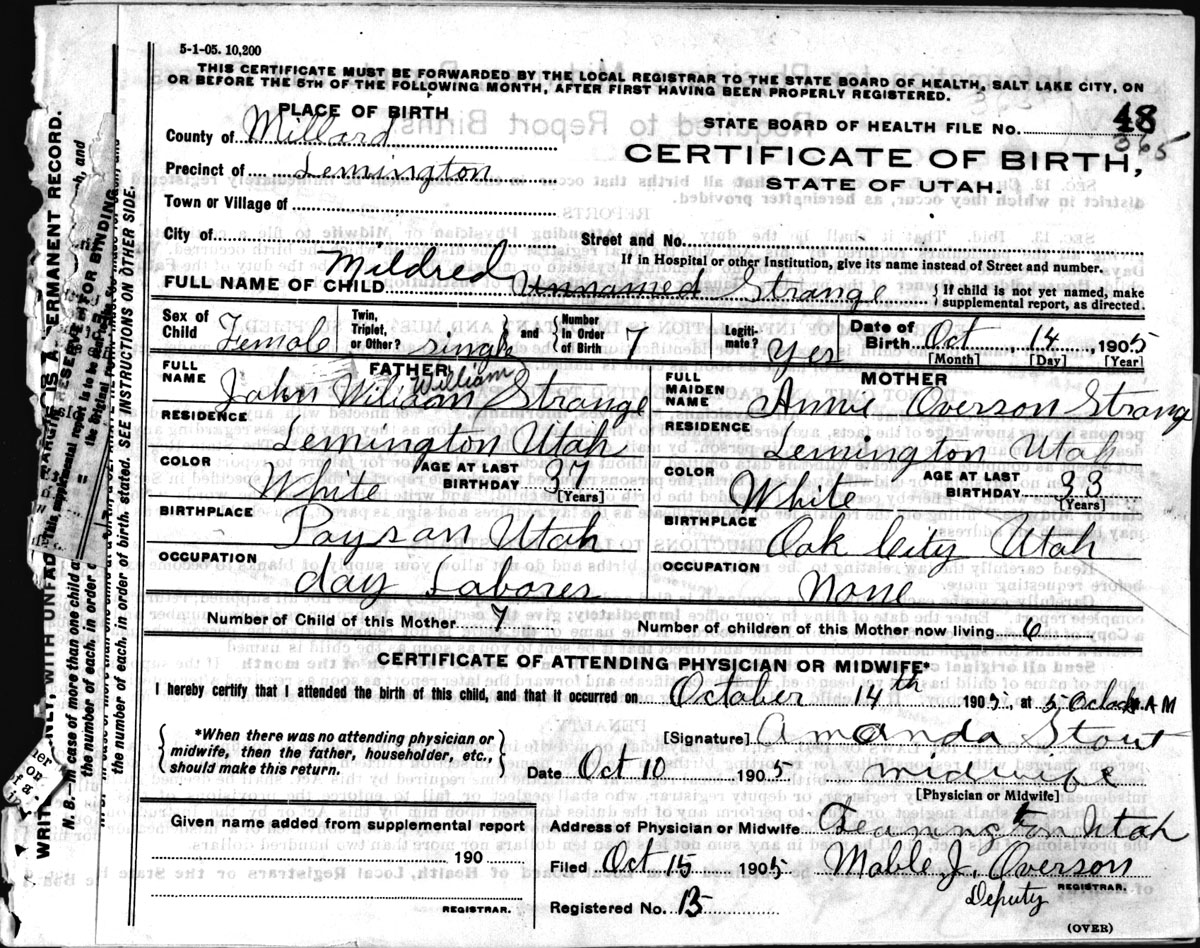 5-1-05. 10,200
THIS CERTIFICATE MUST BE FORWARDED BY THE LOCAL REGISTRAR TO THE STATE BOARD OF HEALTH, SALT LAKE CITY, ON
OR BEFORE THE 5TH OF THE FOLLOWING MONTH, AFTER FIRST HAVING BEEN PROPERLY REGISTERED.
PLACE OF BIRTH
STATE BOARD OF HEALTH FILE No. 48
365
County of Millard
CERTIFICATE OF BIRTH,
Precinct of Lemington
STATE OF UTAH.
Town or Village of
City of Street and No.
If in Hospital or other Institution, give its name instead of Street and number.
FULL NAME OF CHILD Mildred Unnamed Strange { If child is not yet named, make supplemental report, as directed.
Sex of Child Female Twin, Triplet, or Other? single } and { Number in Order of Birth 7 Legitimate? Yes Date of Birth Oct 14, 1905
[Month] [Day] [Year]
FATHER MOTHER
FULL NAME John Wiliam William Strange FULL MAIDEN NAME Annie Overson Strange
RESIDENCE Lemington Utah RESIDENCE Lemington Utah
COLOR White AGE AT LAST BIRTHDAY 37 [Years] COLOR White AGE AT LAST BIRTHDAY 33 [Years]
BIRTHPLACE Payson Utah BIRTHPLACE Oak City Utah
OCCUPATION day Laborer OCCUPATION None
Number of Child of this Mother 7 Number of children of this Mother now living 6
CERTIFICATE OF ATTENDING PHYSICIAN OR MIDWIFE*
I hereby certify that I attended the birth of this child, and that it occurred on October 14th 1905 at 5 Oclock A M
{ *When there was no attending physician or midwife, then the father, householder, etc., should make this return. }
[Signature] Amanda Stout
Date Oct 10 1905 midwife
[Physician or Midwife]
Given name added from supplemental report
190
REGISTRAR.
Address of Physician or Midwife Leamington Utah
Filed Oct 15 1905 Mable J. Overson
Deputy REGISTRAR.
Registered No. 13
(OVER)
N. B. In case of more than one child a
the number of each, in order
the number of each, in order of birth, stated. SEE INSTRUCTIONS ON OTHER SIDE.